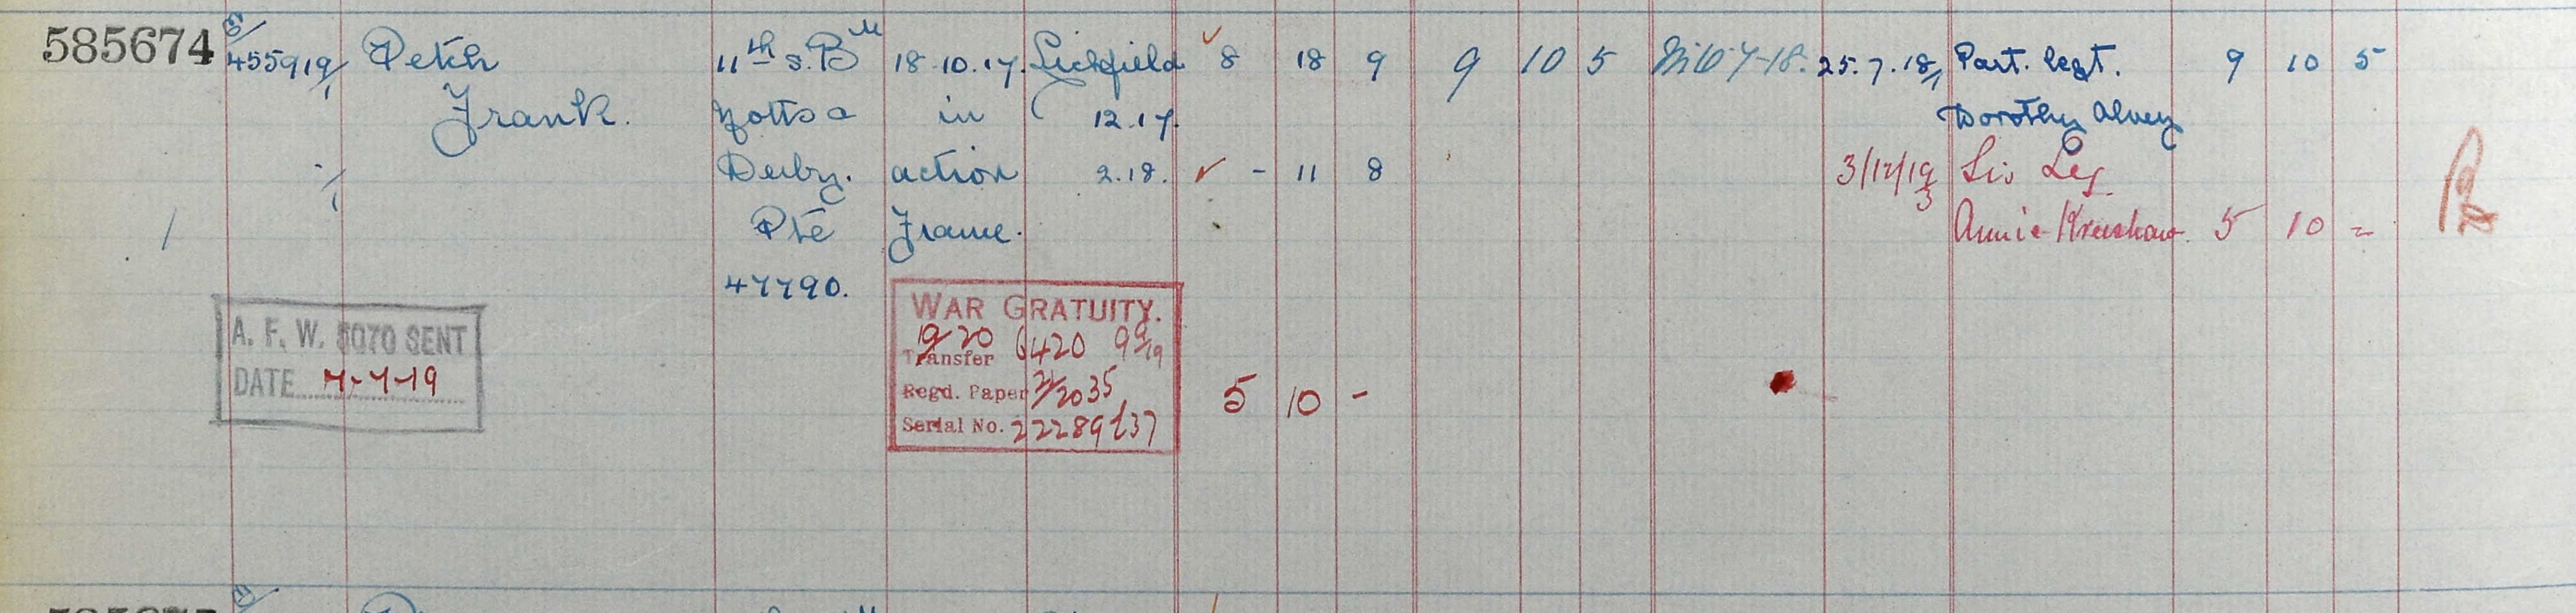 585674 E/455919/1 Petch 11th S. Bn 18.10.17. Lichfield 8 18 9 9 10 5 7-18. 25.7.18 Part. Legt. 9 10 5
Frank. Notts & in 12.17. Dorothy Alvey
Derby. action 2.18. - 11 8 3/12/19 Sis Leg.
Pte France. Annie 5 10 =
47790.
A. F. W. 5070 SENT
DATE 7-7-19
WAR GRATUITY.
19/20 6420 99/19
Transfer
Regd. Paper 2/2035 5 10 -
Serial No.